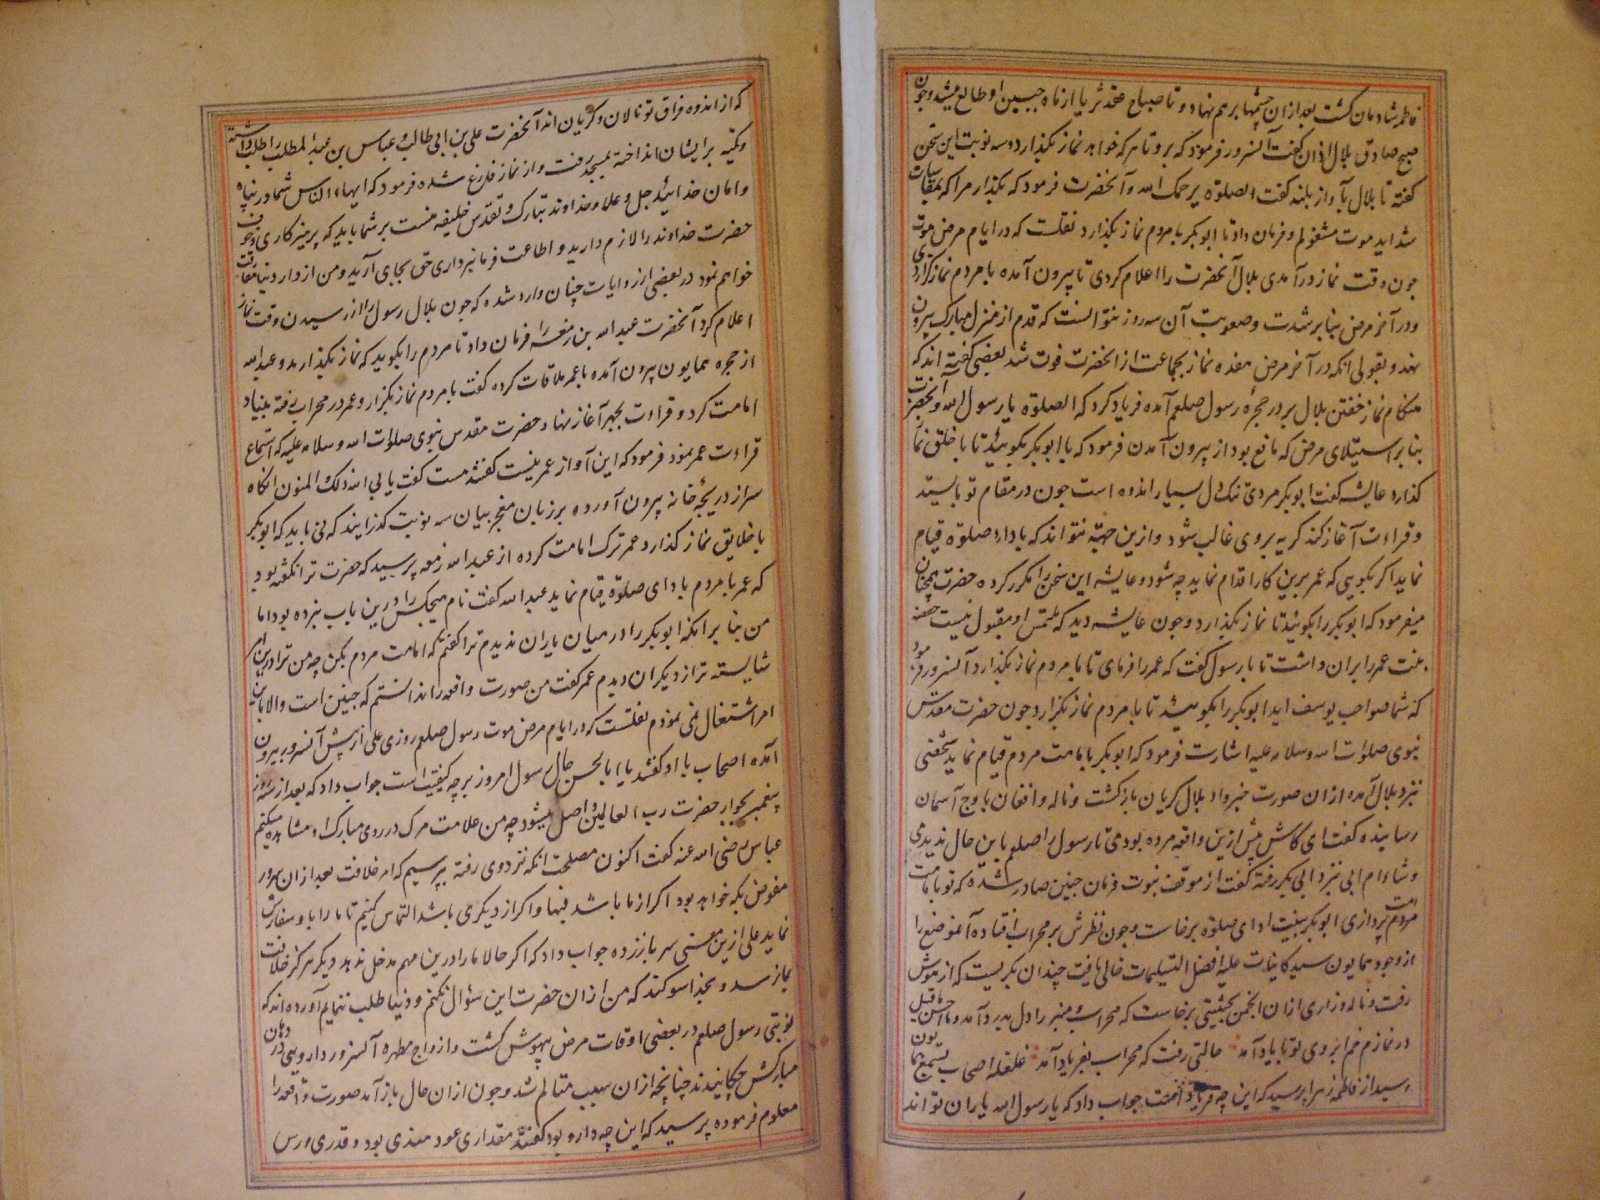 فاطمه شادمان گشت بعد از ان چشمها بر هم نهاد و تا صباح عقد ثریا از ماه جبین او طالع میشد و چون
صبح صادق بلال اذان گفت آنسرور فرمود که برو تا هر که خواهد نماز بگذارد سه نوبت این سخن
گفته تا بلال بآواز بلند گفت الصلوة یرحمک الله و آنحضرت فرمود که بگذار مرا که بمقاسات
شداید موت مشغولم و فرمان داد تا ابوبکر با مردم نماز بگذارد نقلست که در ایام مرض موت
چون وقت نماز در آمدی بلال آنحضرت را اعلام کردی تا بیرون آمده با مردم نماز گزاردی
و در آخر مرض بنا بر شدت و صعوبت آن سه روز نتوانست که قدم از منزل مبارک بیرون
نهد و بقولی انکه در آخر مرض هفده نماز بجماعت از آنحضرت فوت شد بعضی گفته اند که
هنکام نماز خفتن بلال بر در حجره رسول صلعم آمده فریاد کرد که الصلوة یا رسول الله و آنحضرت
بنا بر استیلای مرض که مانع بود از بیرون آمدن فرمود که با ابوبکر بگوئید تا با خلق نماز
گذارد عایشه گفت ابوبکر مردی تنک دل بسیار اندوه است چون در مقام تو بایستد
و قراءت آغاز کند گریه بر وی غالب شود و ازین جهة نتواند که باداء صلوة قیام
نماید اگر بگویی که عمر برین کار اقدام نماید چه شود و عایشه این سخن را مکرر کرده حضرت همچنان
میفرمود که ابوبکر را بگوئید تا نماز بگذارد و چون عایشه دید که ملتمس او مقبول نیست حفصه
بنت عمر را بران داشت تا با رسول گفت که عمر را فرمای تا با مردم نماز بگذارد آنسرور فرمود
که شما صواحب یوسف اید ابوبکر را بگوئید تا با مردم نماز بگزارد چون حضرت مقدس
نبوی صلوات الله و سلامه علیه اشارت فرمود که ابوبکر بامامت مردم قیام نماید شخصی
نزد بلال آمده از ان صورت خبر داد بلال گریان بازگشت و ناله و افغان باوج آسمان
رسانیده گفت ای کاش پیش ازین واقعه مرده بودمی تا رسول را صلعم باین حال ندیدمی
و شاء ام ابی نزد ابی بکر رفته گفت از موقف نبوت فرمان چنین صادر شده که تو بامامت
مردم پردازی ابوبکر بنیت ادای صلوة برخاست و چون نظرش بر محراب افتاده آنموضع را
از وجود همایون سید کاینات علیه افضل التسلیمات خالی یافت چندان بگریست که از هوش
رفت و ناله و زاری از ان انجمن بحیثیتی برخاست که محراب و منبر را دل بدرد آمد و ما احسن قیل
در نمازم خم ابروی تو با یاد آمد حالتی رفت که محراب بفریاد آمد غلغله اصحاب بسمع همایون
رسید از فاطمه زهرا پرسید که این چه فریاد و افغانست جواب داد که یا رسول الله یاران تواند
که از اندوه فراق تو نالان و گریان اند آنحضرت علی بن ابی طالب و عباس بن عبد المطلب را طلب داشته
و تکیه بر ایشان انداخته بمسجد رفت و از نماز فارغ شده فرمود که ایها الناس شما در پناه
و امان خدائید جل و علا و خداوند تبارک و تقدس خلیفه منست بر شما باید که پرهیزکاری و خوف
حضرت خداوند را لازم دارید و اطاعت فرمانبرداری حق بجای آرید و من از دار دنیا مفارقت
خواهم نمود در بعضی از روایات چنان وارد شده که چون بلال رسول را از رسیدن وقت نماز
اعلام کرد آنحضرت عبد الله بن زمعه را فرمان داد تا مردم را بگوید که نماز بگذارند و عبد الله
از حجره همایون بیرون آمده با عمر ملاقات کرده گفت با مردم نماز بگزار و عمر در محراب رفته بنیاد
امامت کرد و قراءت بجهر آغاز نهاد حضرت مقدس نبوی صلوات الله و سلامه علیه که استماع
قراءت عمر نمود فرمود که این آواز عمر نیست گفتند هست گفت یابی الله ذلک و المؤمنون انکاه
سر از دریچه خانه بیرون آورده بر زبان معجز بیان سه نوبت گذرانیدند که نی باید که ابوبکر
با خلایق نماز گذارد عمر ترک امامت کرده از عبد الله زمعه پرسید که حضرت ترا نگفته بود
که عمر با مردم بادای صلوة قیام نماید عبد الله گفت نام هیچکس را درین باب نبرده بود اما
من بنا بر انکه ابوبکر را در میان یاران ندیدم ترا گفتم که امامت مردم بکن چه من ترا درین امر
شایسته تر از دیگران دیدم عمر گفت من صورت واقعه را ندانستم که چنین است و الا باین
امر اشتغال نمی نمودم نقلست که در ایام مرض موت رسول صلعم روزی علی از پیش آنسرور بیرون
آمده اصحاب با او گفتند یا ابا الحسن حال رسول امروز بر چه کیفیت است جواب داد که بعد از سه روز
پیغمبر بجوار حضرت رب العالمین واصل میشود چه من علامت مرگ در روی مبارک او مشاهده میکنم
عباس رضی الله عنه گفت اکنون مصلحت انکه نزد وی رفته بپرسیم که امر خلافت بعد از ان سرور
مفوض بکه خواهد بود اگر از ما باشد فبها و اگر از دیگری باشد التماس کنیم تا ما را باو سفارش
نماید علی ازین معنی سر باز زده جواب داد که اگر حالا ما را درین مهم مدخل ندهد دیگر هرگز خلافت
بما نرسد و بخدا سوگند که من از ان حضرت این سؤال نکنم و دنیا طلب ننمایم آورده اند که
نوبتی رسول صلعم در بعضی اوقات مرض بیهوش گشت و ازواج مطهره آنسرور دارویی در دهان
مبارکش چکانیدند چنانچه از ان سبب متالم شد و چون از ان حال باز آمد صورت واقعه را
معلوم فرموده پرسید که این چه دارو بود گفتند مقداری عود هندی بود و قدری ورس